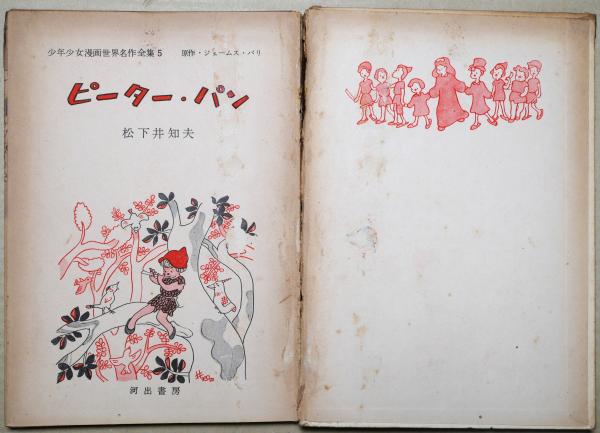 少年少女漫画世界名作全集5 原作・ジェームス・バリ
ピーター・パン
松下井知夫
河出書房